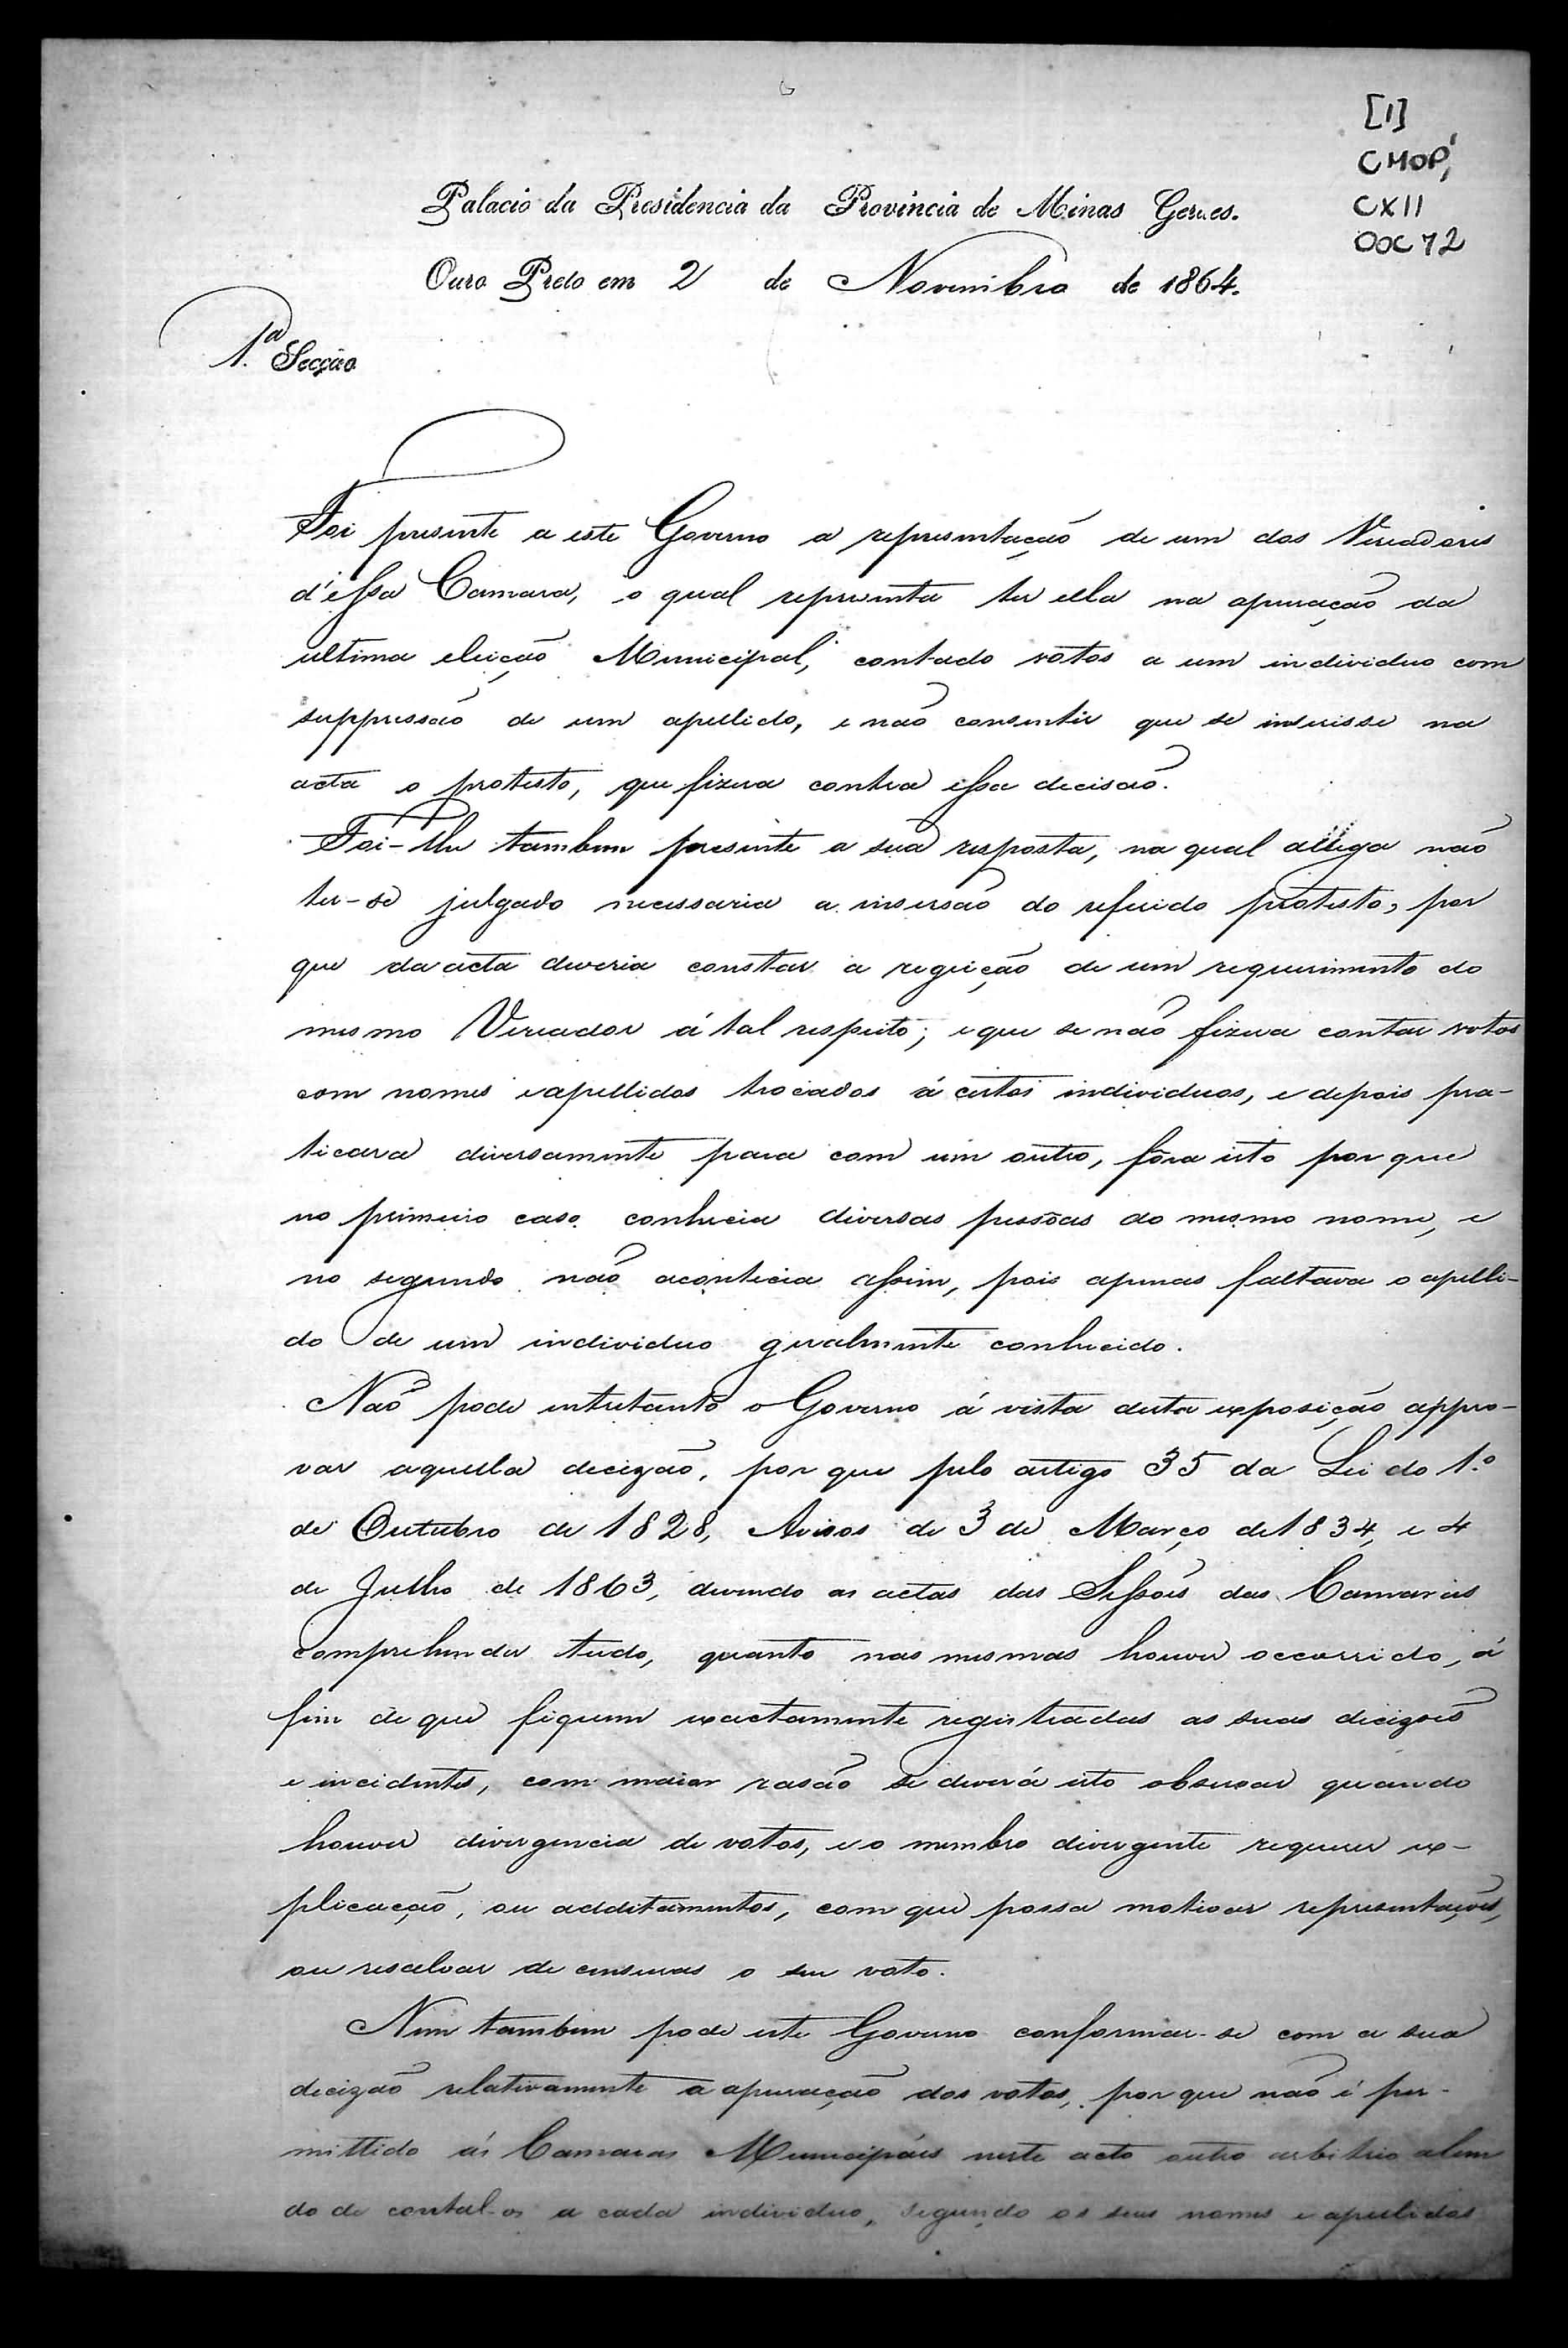 [1]
CMOP,
CXII
DOC 72
Palacio da Presidencia da Provincia de Minas Geraes.
Ouro Preto em 2 de Novembro de 1864.
1.ª Secção
Foi presente a este Governo a representação de um dos Vereadores
d'essa Camara, o qual representa ter ella na apuração da
ultima eleição Municipal, contado votos a um individuo com
suppressão de um apellido, e não consentir que se inserisse na
acta o protesto, que fizera contra essa decisão.
Foi-lhe tambem presente a sua resposta, na qual allega não
ter-se julgado necessaria a insersão do referido protesto, por
que da acta deveria constar a regeição de um requerimento do
mesmo Vereador á tal respeito; e que se não fizera contar votos
com nomes e apellidos trocados á certos individuos, e depois pra-
ticara diversamente para com um outro, fôra isto por que
no primeiro caso conhecia diversas pessoas do mesmo nome, e
no segundo não acontecia assim, pois apenas faltava o apelli-
do de um individuo geralmente conhecido.
Não pode entretanto o Governo á vista desta exposição appro-
var aquella decizão, por que pelo artigo 35 da Lei do 1.º
de Outubro de 1828, Avisos de 3 de Março de 1834, e 4
de Julho de 1863, devendo as actas das Sessões das Camaras
comprehender tudo, quanto nas mesmas houver occorrido, á
fim de que fiquem exactamente registradas as suas decizoẽs
e incidentes, com maior rasão se deverá isto observar quando
houver divergencia de votos, e o membro divergente requerer ex-
plicação, ou additamentos, com que possa motivar representações,
ou resalvar de censuras o seu voto.
Nem tambem pode este Governo conformar-se com a sua
decizão relativamente a apuração dos votos, por que não é per-
mittido ás Camaras Municipáes neste acto outro arbitrio alem
do de contal-os a cada individuo, segundo os seus nomes e apellidos